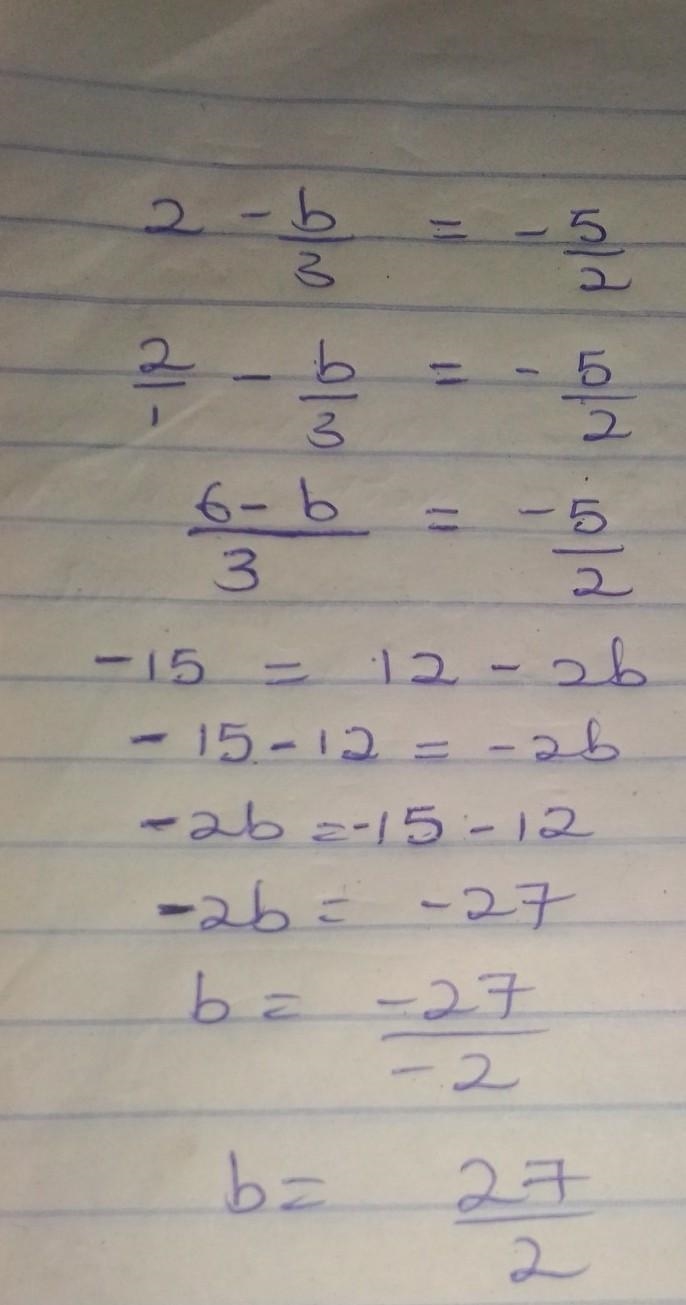 2 - b/3 = - 5/2
2/1 - b/3 = - 5/2
6 - b/3 = - 5/2
-15 = 12 - 2b
-15 - 12 = -2b
-2b = -15 - 12
-2b = -27
b = -27/-2
b = 27/2